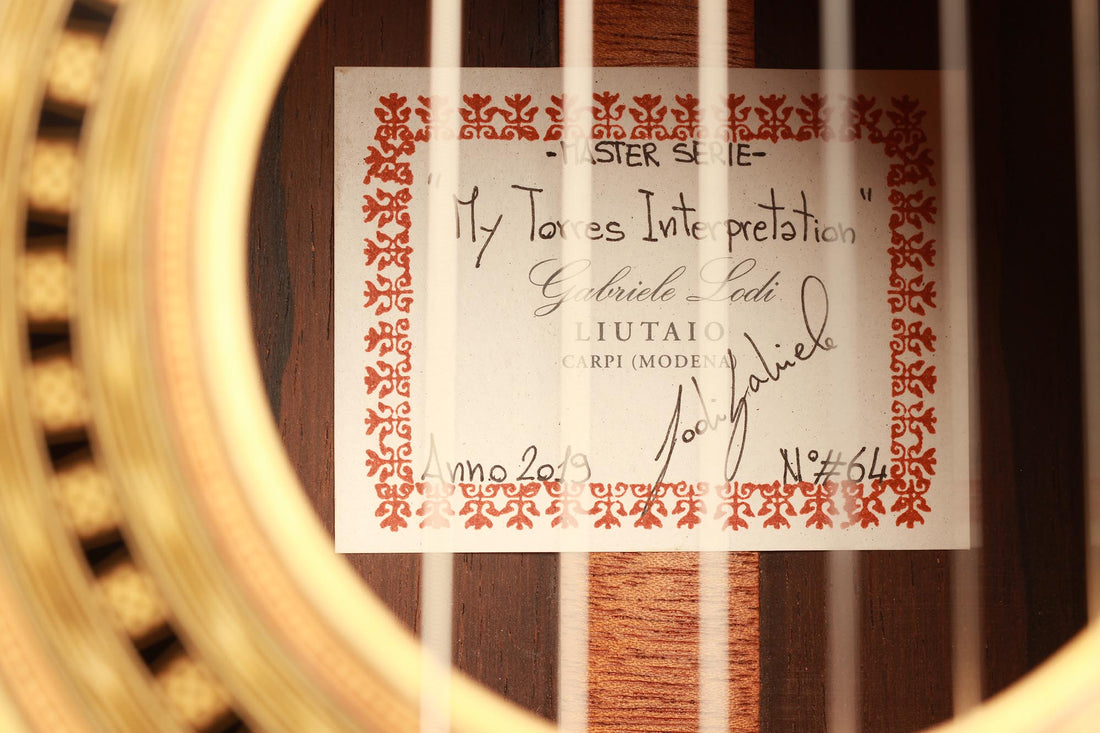 -MASTER SERIE-
"My Torres Interpretation"
Gabriele Lodi
LIUTAIO
CARPI (MODENA)
Lodi Gabriele
Anno 2019 N°#64